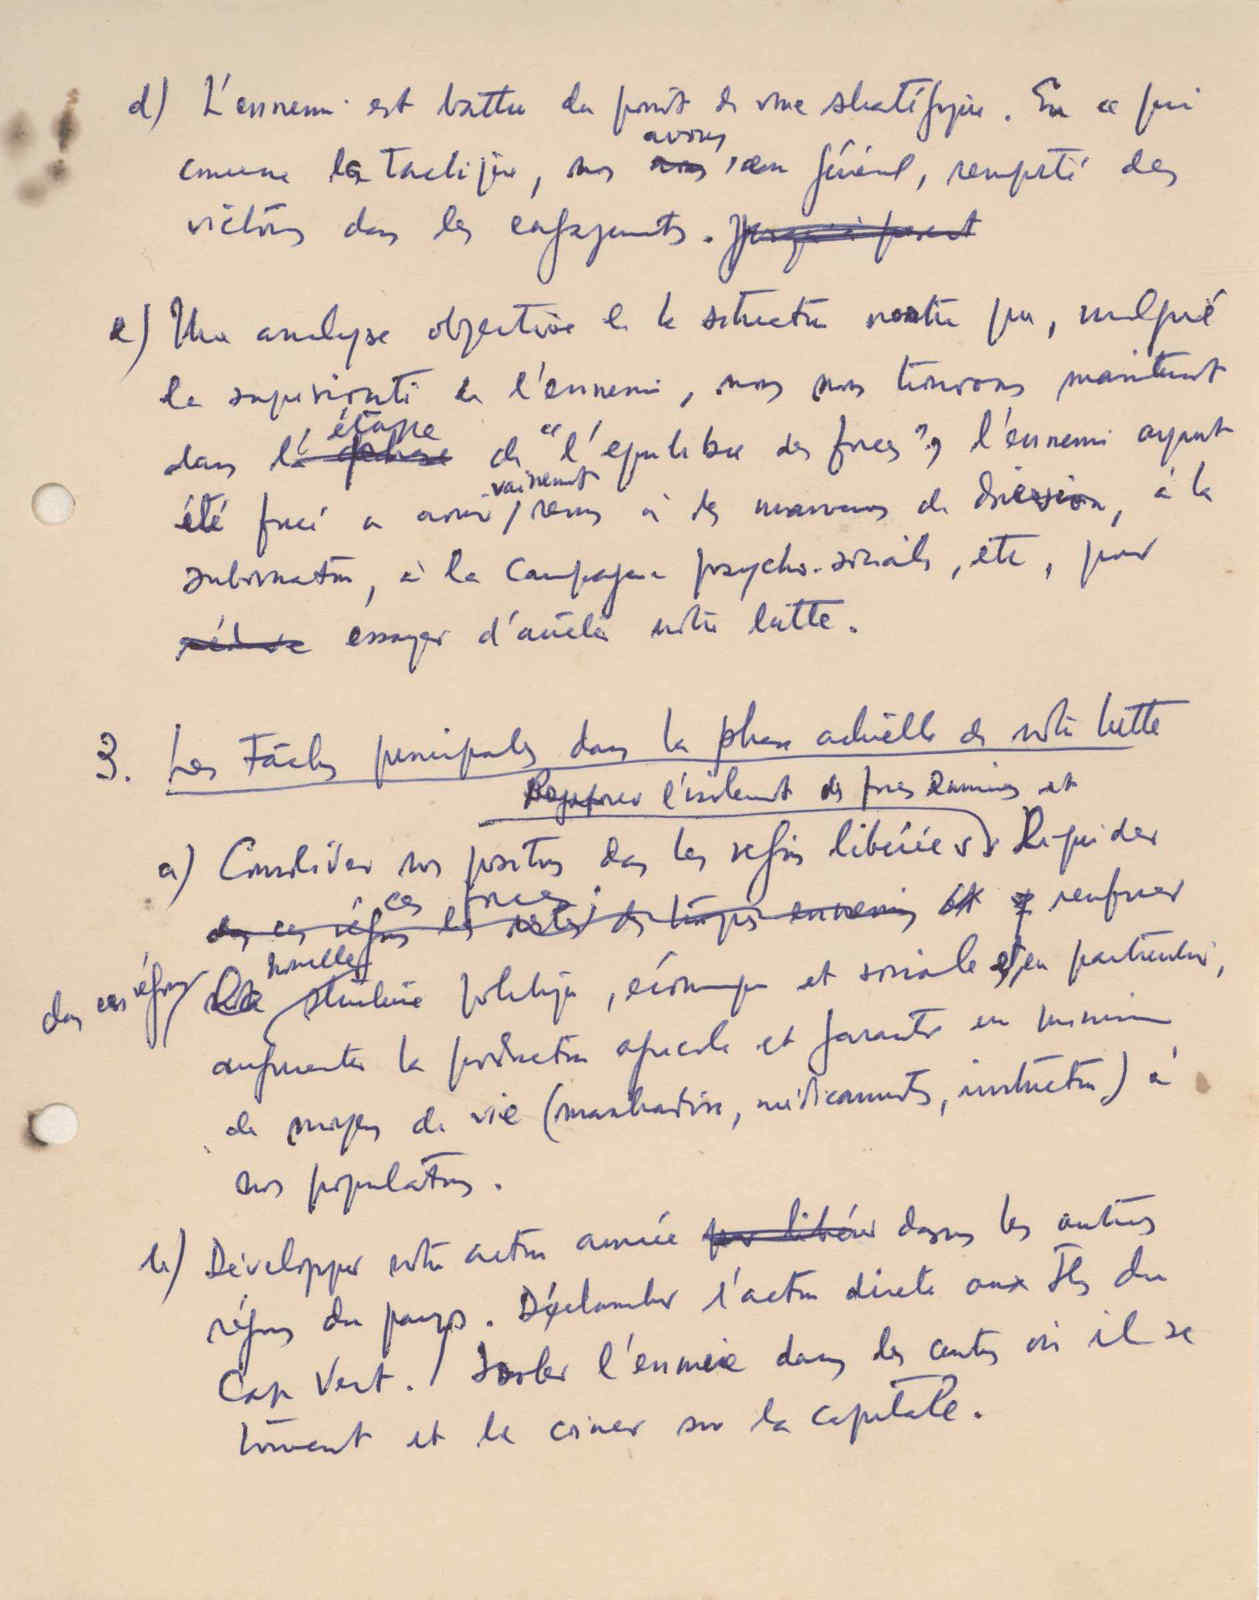 d) L'ennemi est battu du point de vue stratégique. En ce qui
avons
concerne la tactique, nous en général, remporté des
victoires dans les engagements. jusqu'à présent
e) Une analyse objective de la situation montre que, malgré
la supériorité de l'ennemi, nous nous trouvons maintenant
étape
dans l' phase de "l'équilibre des forces", l'ennemi ayant
vainement
été forcé a avoir recours à des manœuvres de division, à la
subornation, à la campagne psycho-sociale, etc, pour
réduire essayer d'arrêter notre lutte.
3. Les Tâches principales dans la phase actuelle de notre lutte
Renforcer l'isolement des forces ennemies et
a) Consolider nos positions dans les régions libérées Liquider
ces forces
dans ces régions les restes des troupes ennemies et renforcer
nouvelle
dans ces régions La structure politique, économique et sociale et, en particulier,
augmenter la production agricole et garantir un minimum
de moyens de vie (marchandise, médicaments, instruction) à
nos populations.
b) Développer notre action armée pour libérer dans les autres
régions du pays. Déclencher l'action directe aux Iles du
Cap Vert. Isoler l'ennemie dans les centres où il se
trouvent et le coincer sur la capitale.